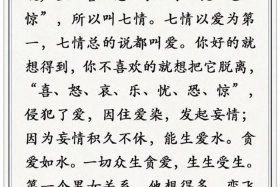 惊”，所以叫七情。七情以爱为第
一，七情总的说都叫爱。你好的就
想得到，你不喜欢的就想把它脱离，
“喜、怒、哀、乐、忧、恐、惊”，
侵犯了爱，因住爱染，发起妄情；
因为妄情积久不休，能生爱水。贪
爱如水。一切众生贪爱，生生受生。
第一个男女关系，他想得多，